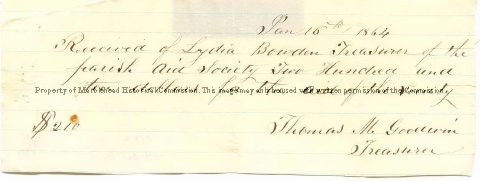 Jan 16th 1864
Received of Lydia Bowden Treasurer of the
parish Aid Society Two Hundred and
Property of Marblehead Historical Commission. This image may only be used with written permission of the Commission
$210
Thomas M. Goodwin
Treasurer